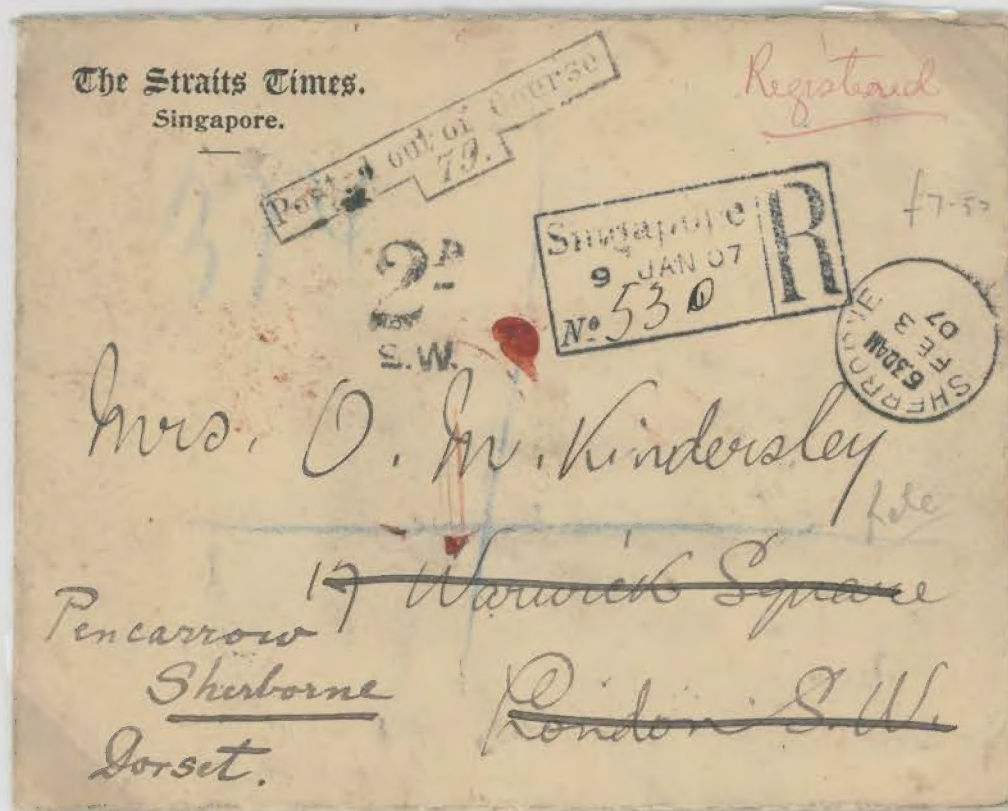 The Straits Times.
Singapore.
Posted out of Course
79.
Registered
2D
S.W.
Singapore
9 JAN 07
R
No 530
£7-50
SHERBORNE
6.30AM
FE 3
07
Mrs. O. M. Kindersley
17 Warwick Square
London S.W.
Pencarrow
Sherborne
Dorset.